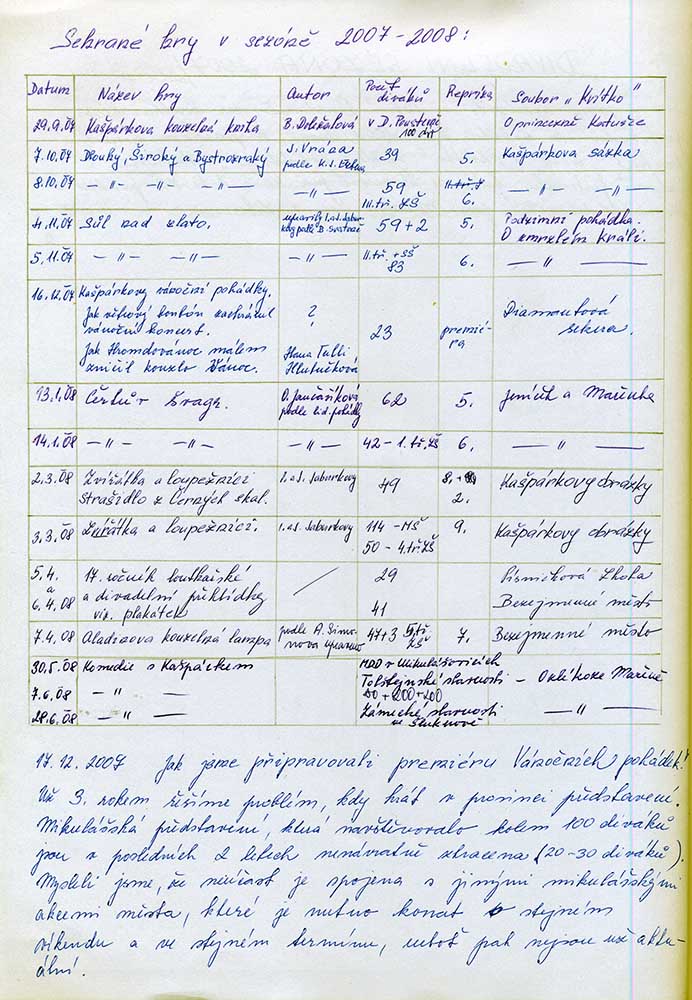 Sehrané hry v sezóně 2007-2008:
Datum Název hry Autor Počet diváků Repríza Soubor „Krítko"
29.9.07 Kašpárkova kouzelná kniha B. Doležalová v D. Poustevně 100 dětí O princezně Katušce
7.10.07 Dlouhý, Široký a Bystrozraký J. Vrána podle K.J. Erbena 39 5. Kašpárkova sázka
8.10.07 -"- -"- -"- -"- 59 III.tř. ZŠ 6. -"- -"-
4.11.07 Sůl nad zlato. upravily podle B. 59+2 5. Podzimní pohádka. O zmrzlém králi.
5.11.07 -"- -"- -"- -"- II.tř. + SŠ 83 6. -"-
16.12.07 Kašpárkovy vánoční pohádky.
Jak zachránil vánoční koncert. ? 23 premiéra Diamantová sekera.
Jak Hromdovánoc málem zničil kouzlo Vánoc. Hana Tulli Hlutučková
13.1.08 Čertův švagr. O. Jančaříková podle lid. pohádky 62 5. Jeníček a Mařenka
14.1.08 -"- -"- -"- 42 - 1. tř. ZŠ 6. -"-
2.3.08 Zvířátka a loupežníci I. a J. Saburkovy 49 8. +
Strašidlo z Černých skal. 2. Kašpárkovy obrázky
3.3.08 Zvířátka a loupežníci. I. a J. Saburkovy 114 - MŠ 9. Kašpárkovy obrázky
50 - 4.tř. ZŠ
5.4. 17. ročník loutkářské 29 Písničková škola
a a divadelní přehlídky
6.4.08 viz. plakátek 41 Bezejmenné město
7.4.08 Aladinova kouzelná lampa podle A. Simonova upraveno 47+3 5.tř. ZŠ 7. Bezejmenné město
30.5.08 Komedie s Kašpárkem MDD v Mikulášovicích
7.6.08 -"- Tolštejnské slavnosti - Mařeně
+ 200 + 200
28.6.08 -"- Zámecké slavnosti ve Šluknově -"-
17.12.2007 Jak jsme připravovali premiéru Vánočních pohádek!
Už 3. rokem řešíme problém, kdy hrát v prosinci představení.
Mikulášská představení, která navštěvovalo kolem 100 diváků
jsou v posledních 2 letech nenávratně ztracena (20-30 diváků).
Mysleli jsme, že neúčast je spojena s jinými mikulášskými
akcemi města, které je nutno konat o stejném
víkendu a ve stejném termínu, neboť pak nejsou už aktu-
ální.